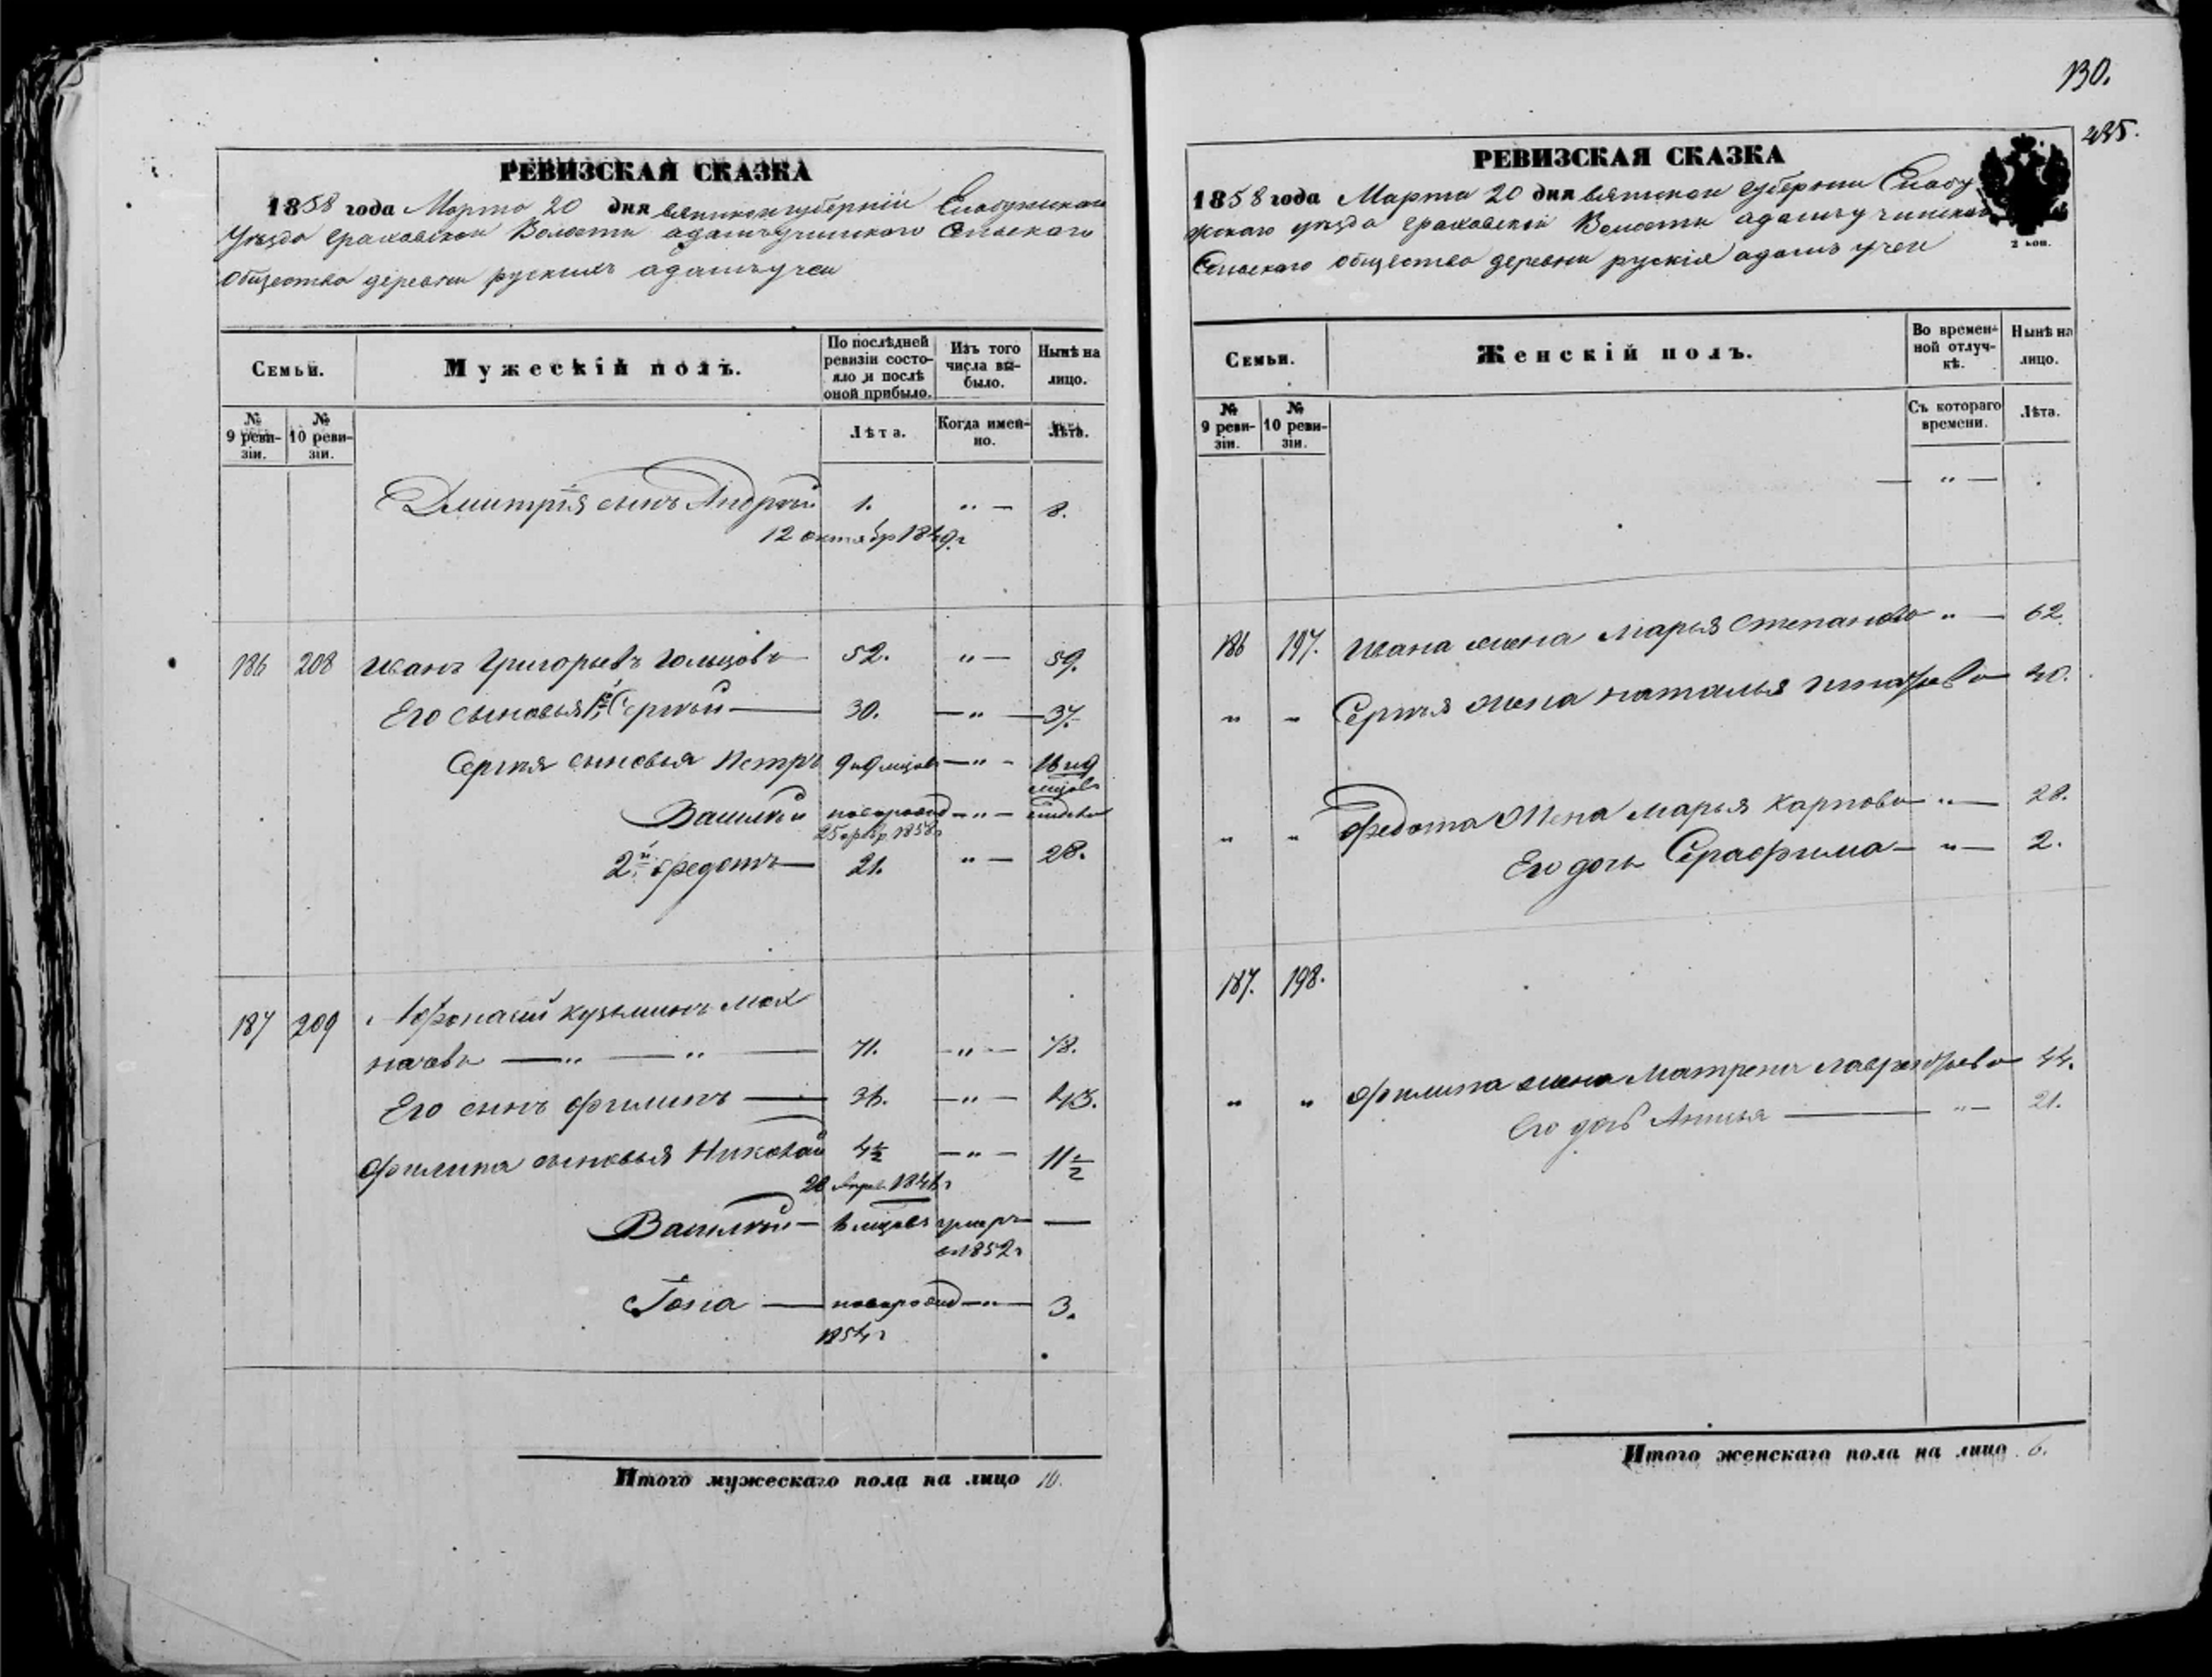 РЕВИЗСКАЯ СКАЗКА
1858 года Марта 20 дня вятской губерніи Елабужскаго
Уезда Граховской Волости адамъучинскаго Сельскаго
Общества деревни рускихъ адамъучеи
Семьи.
Мужескій полъ.
По послѣдней ревизіи состояло и послѣ оной прибыло.
Изъ того числа выбыло.
Нынѣ на лицо.
№ 9 ревизіи.
№ 10 ревизіи.
Лѣта.
Когда именно.
Лѣта.
Дмитрія сынъ Андрей 1. " — 8.
12 октябр 1849 г
186 208 Иванъ Григорьевъ Гольцовъ 52. " — 59.
Его сыновья 1й Сергѣй — 30. — " — 37.
Сергѣя сыновья Петръ 9 и 9 мцовъ — " — 16 и 9 мцовъ
Василѣй новорожд — " —
25 1858 г
2й Федотъ — 21. " — 28.
187 209 Афонасий Кузьминъ Мох
начевъ — " — " — 71. — " — 78.
Его сынъ Филипъ — 36. — " — 43.
Филипа сыновья Николай 4½ — " — 11½
Василѣй — 6 мцовъ умеръ —
в 1852 г
Іона — новорожд — " — 3.
1854 г
Итого мужескаго пола на лицо 10.
130.
435.
РЕВИЗСКАЯ СКАЗКА
1858 года Марта 20 дня вятской Губернии Елабу
жскаго уезда Граховской Волости адамъучинскаго
Сельскаго Общества деревни рускія адамъ учеи
2 коп.
Семьи.
Женскій полъ.
Во временной отлучкѣ.
Нынѣ на лицо.
№ 9 ревизіи.
№ 10 ревизіи.
Съ котораго времени.
Лѣта.
— " —
186 197. Ивана жена Марья Степанова " — 62.
" " Сергѣя жена Наталья 40.
" " Федота Жена Марья Карпова " — 28.
Его дочь Серафима — " — 2.
187. 198.
" " Филипа жена Матрена 44.
Его дочь — " — 21.
Итого женскаго пола на лицо 6.